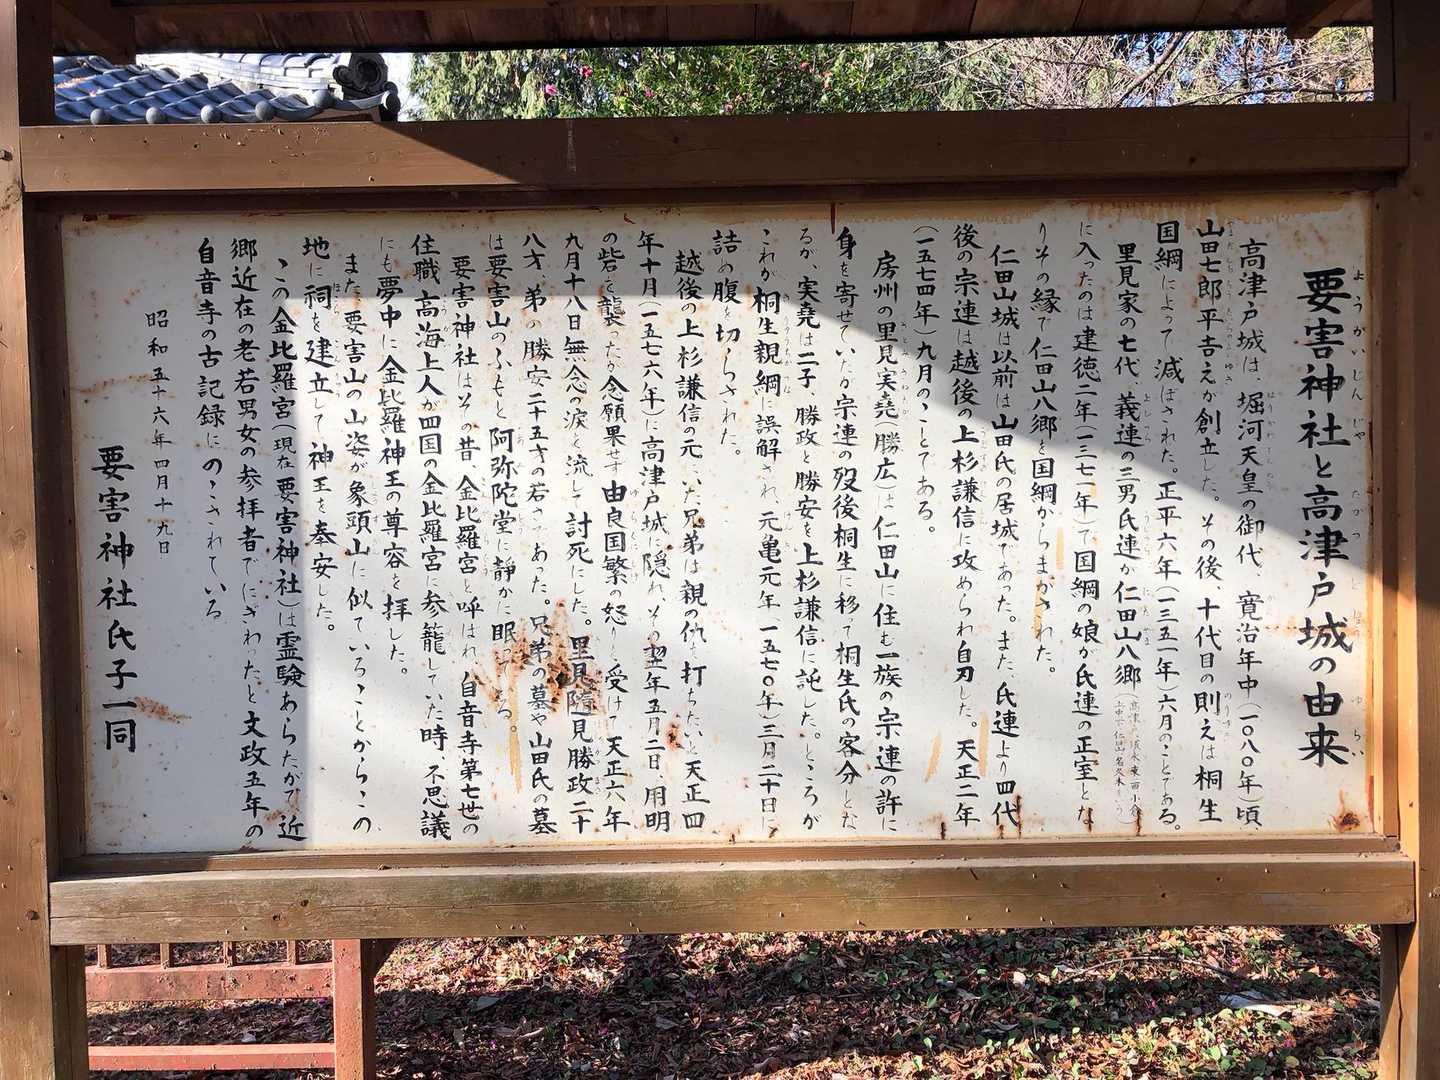 要害神社と高津戸城の由来
高津戸城は、堀河天皇の御代、寛治年中(一〇八〇年)頃、
山田七郎平吉之が創立した。その後、十代目の則之は桐生
国綱によって滅ぼされた。正平六年(一三五一年)六月のことである。
里見家の七代、義連の三男氏連が仁田山八郷
に入ったのは建徳二年(一三七一年)で国綱の娘が氏連の正室とな
りその縁で仁田山八郷を国綱からまかされた。
仁田山城は以前は山田氏の居城であった。また、氏連より四代
後の宗連は越後の上杉謙信に攻められ自刃した。天正二年
(一五七四年)九月のことである。
房州の里見実堯(勝広)は仁田山に住む一族の宗連の許に
身を寄せていたが宗連の歿後桐生に移って桐生氏の客分とな
るが、実堯は二子、勝政と勝安を上杉謙信に託した。ところが
これが桐生親綱に誤解され、元亀元年(一五七〇年)三月二十日に
詰め腹を切らされた。
越後の上杉謙信の元にいた兄弟は親の仇を打ちたいと天正四
年十月(一五七六年)に高津戸城に隠れ、その翌年五月二日、用明
の砦を襲ったが念願果せず由良国繁の怒りを受けて天正六年
九月十八日無念の涙を流して討死にした。里見随見勝政二十
八才、弟の勝安二十五才の若さであった。兄弟の墓や山田氏の墓
は要害山のふもと阿弥陀堂に静かに眠っている。
要害神社はその昔、金比羅宮と呼ばれ、自音寺第七世の
住職、高海上人が四国の金比羅宮に参籠していた時、不思議
にも夢中に金比羅神王の尊容を拝した。
また、要害山の山姿が象頭山に似ていることからこの
地に祠を建立して神王を奉安した。
この金比羅宮(現在要害神社)は霊験あらたかで近
郷近在の老若男女の参拝者でにぎわったと文政五年の
自音寺の古記録にのこされている
昭和五十六年四月十九日
要害神社氏子一同